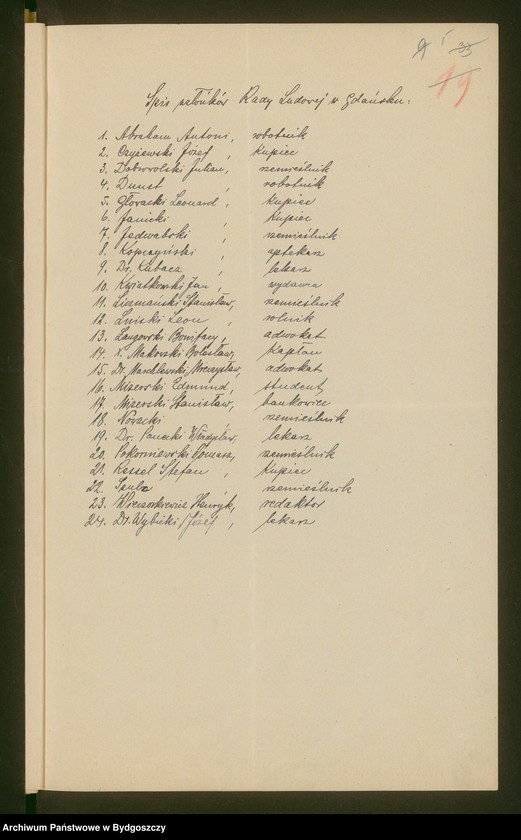 19
Spis członków Rady Ludowej w Gdańsku:
1. Abraham Antoni, robotnik
2. Czyżewski Józef, kupiec
3. Dobrowolski Julian, rzemieślnik
4. Dunst, robotnik
5. Głowacki Leonard, kupiec
6. Janicki, kupiec
7. Jedwabski, rzemieślnik
8. Kopczyński, aptekarz
9. Dr. Kubacz, lekarz
10. Kwiatkowski Jan, wydawca
11. Stanisław, rzemieślnik
12. Leon, rolnik
13. Langowski Bonifacy, adwokat
14. X. Makowski Bolesław, kapłan
15. Dr. Mieczysław, adwokat
16. Mizerski Edmund, student
17. Mizerski Stanisław, bankowiec
18. Nowacki rzemieślnik
19. Dr. Panecki Władysław, lekarz
20. Pokorniewski Tomasz, rzemieślnik
21. Stefan, kupiec
22. Szulz rzemieślnik
23. Wieczorkiewicz Henryk, redaktor
24. Dr. Wybicki Józef, lekarz
Archiwum Państwowe w Bydgoszczy